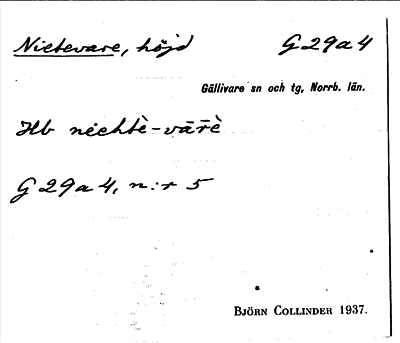 Nietevare, höjd G29a4
Gällivare sn och tg, Norrb. län.
Hb niehtè-vārè
G29a4, n:r 5
BJÖRN COLLINDER 1937.